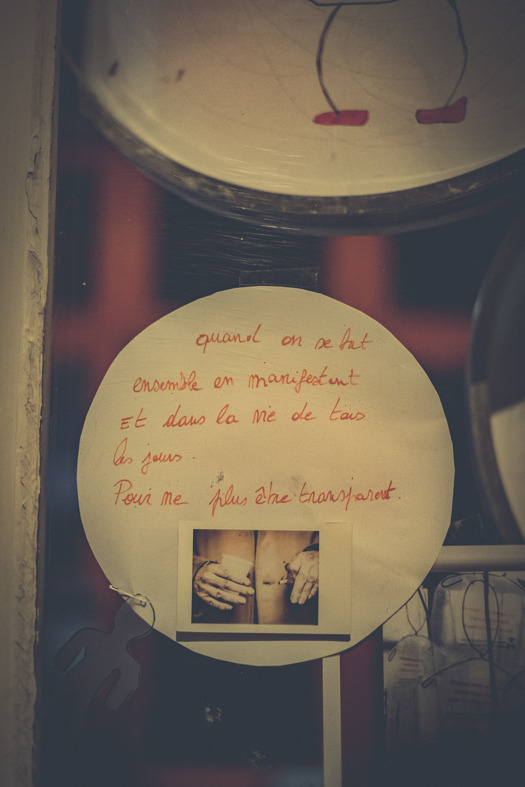 quand on se bat
ensemble en manifestant
Et dans la vie de tous
les jours.
Pour ne plus être transparent.